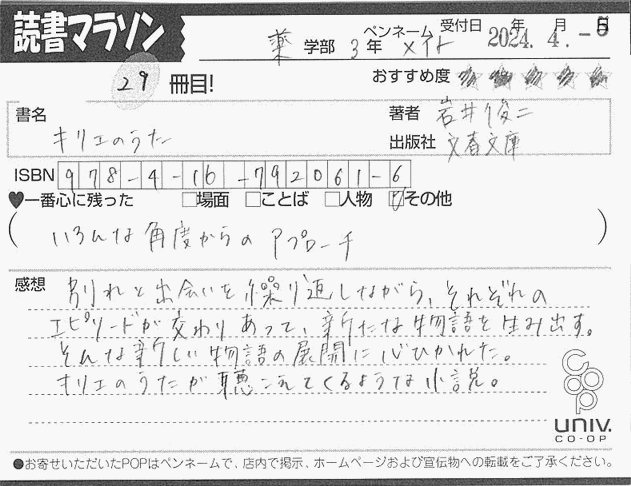 読書マラソン
薬 学部 3年 ペンネーム メイト 受付日 2024.4.-5 年 月 日
29 冊目! おすすめ度 ★★★★★
書名 キリエのうた
著者 岩井俊二
出版社 文春文庫
ISBN 978-4-16-792061-6
♥一番心に残った □場面 □ことば □人物 ☑その他
(いろんな角度からのアプローチ)
感想 別れと出会いを繰り返しながら、それぞれの
エピソードが交わりあって、新たな物語を生み出す。
そんな新しい物語の展開に心ひかれた。
キリエのうたが聴こえてくるような小説。
coop
univ.
CO-OP
●お寄せいただいたPOPはペンネームで、店内で掲示、ホームページおよび宣伝物への転載をご了承ください。